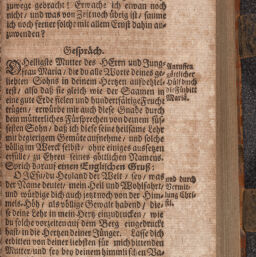 zuwege gebracht! Erwache ich etwan noch
nicht, und was vor Zeit noch übrig ist, säume
ich noch ferner solche mit allem Ernst dahin an-
zuwenden?
Gespräch.
Heiligste Mutter des HErrn und Jung-
frau Maria, die du alle Worte deines ge-
liebten Sohns in deinem Hertzen aufbehal-
test, also daß sie gleich wie der Saamen in
eine gute Erde fielen und hundertfältige Frucht
trügen, erwürbe mir auch diese Gnade durch
dein mütterliches Fürsprechen von deinem süs-
sesten Sohn, daß ich diese seine heilsame Lehr
mit begierigem Gemüte aufnehme, und solche
völlig im Werck selbst, ohne einiges ausetzen
erfülle, zu Ehren seines göttlichen Namens.
Sprich darauf einen Englischen Gruß:
O JEsu, du Heyland der Welt, sey, was
der Name deutet, mein Heil und Wohlfahrt,
und würdige dich auch jetzt noch von der Him-
mels-Höh, als völlige Gewalt habend, die-
se deine Lehr in mein Hertz einzudrucken, wie
du solche vorzeiten auf dem Berg eingedruckt
hast in die Hertzen deiner Jünger. Lasse dich
erbitten von deiner liebsten für mich bittenden
Mutter, und sey bey deinem himmlischen Va-
Anruffen
göttlicher
Hülf durch
die Fürbitt
Mariä.
und durch
Vermitt-
lung Chri-
sti.